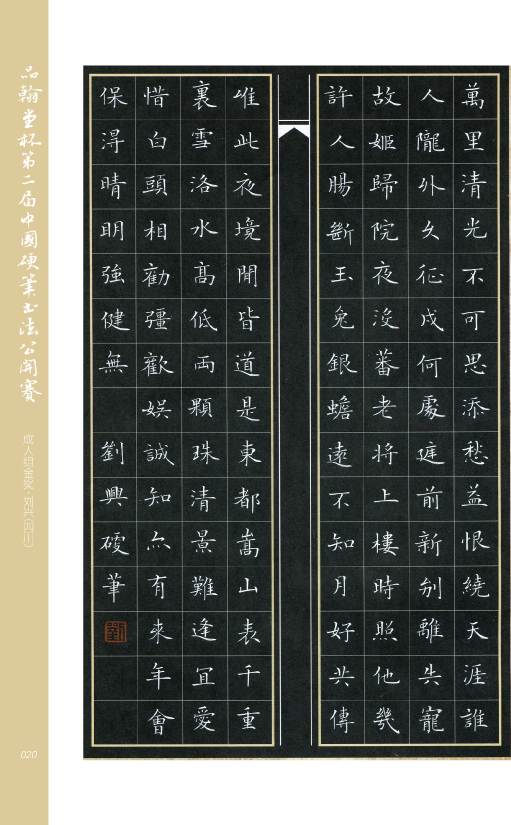 品翰堂杯第二届中國硬筆书法公開賽
成人组金奖·刘兴(四川)
020
萬里清光不可思添愁益恨繞天涯誰
人隴外久征戍何處庭前新別離失寵
故姬歸院夜沒蕃老将上樓時照他幾
許人腸斷玉兔銀蟾遠不知月好共傳
唯此夜境閒皆道是東都嵩山表千重
裏雪洛水髙低両顆珠清景難逢宜愛
惜白頭相勸彊歡娱誠知亦有來年會
保淂晴明強健無
劉興硬筆